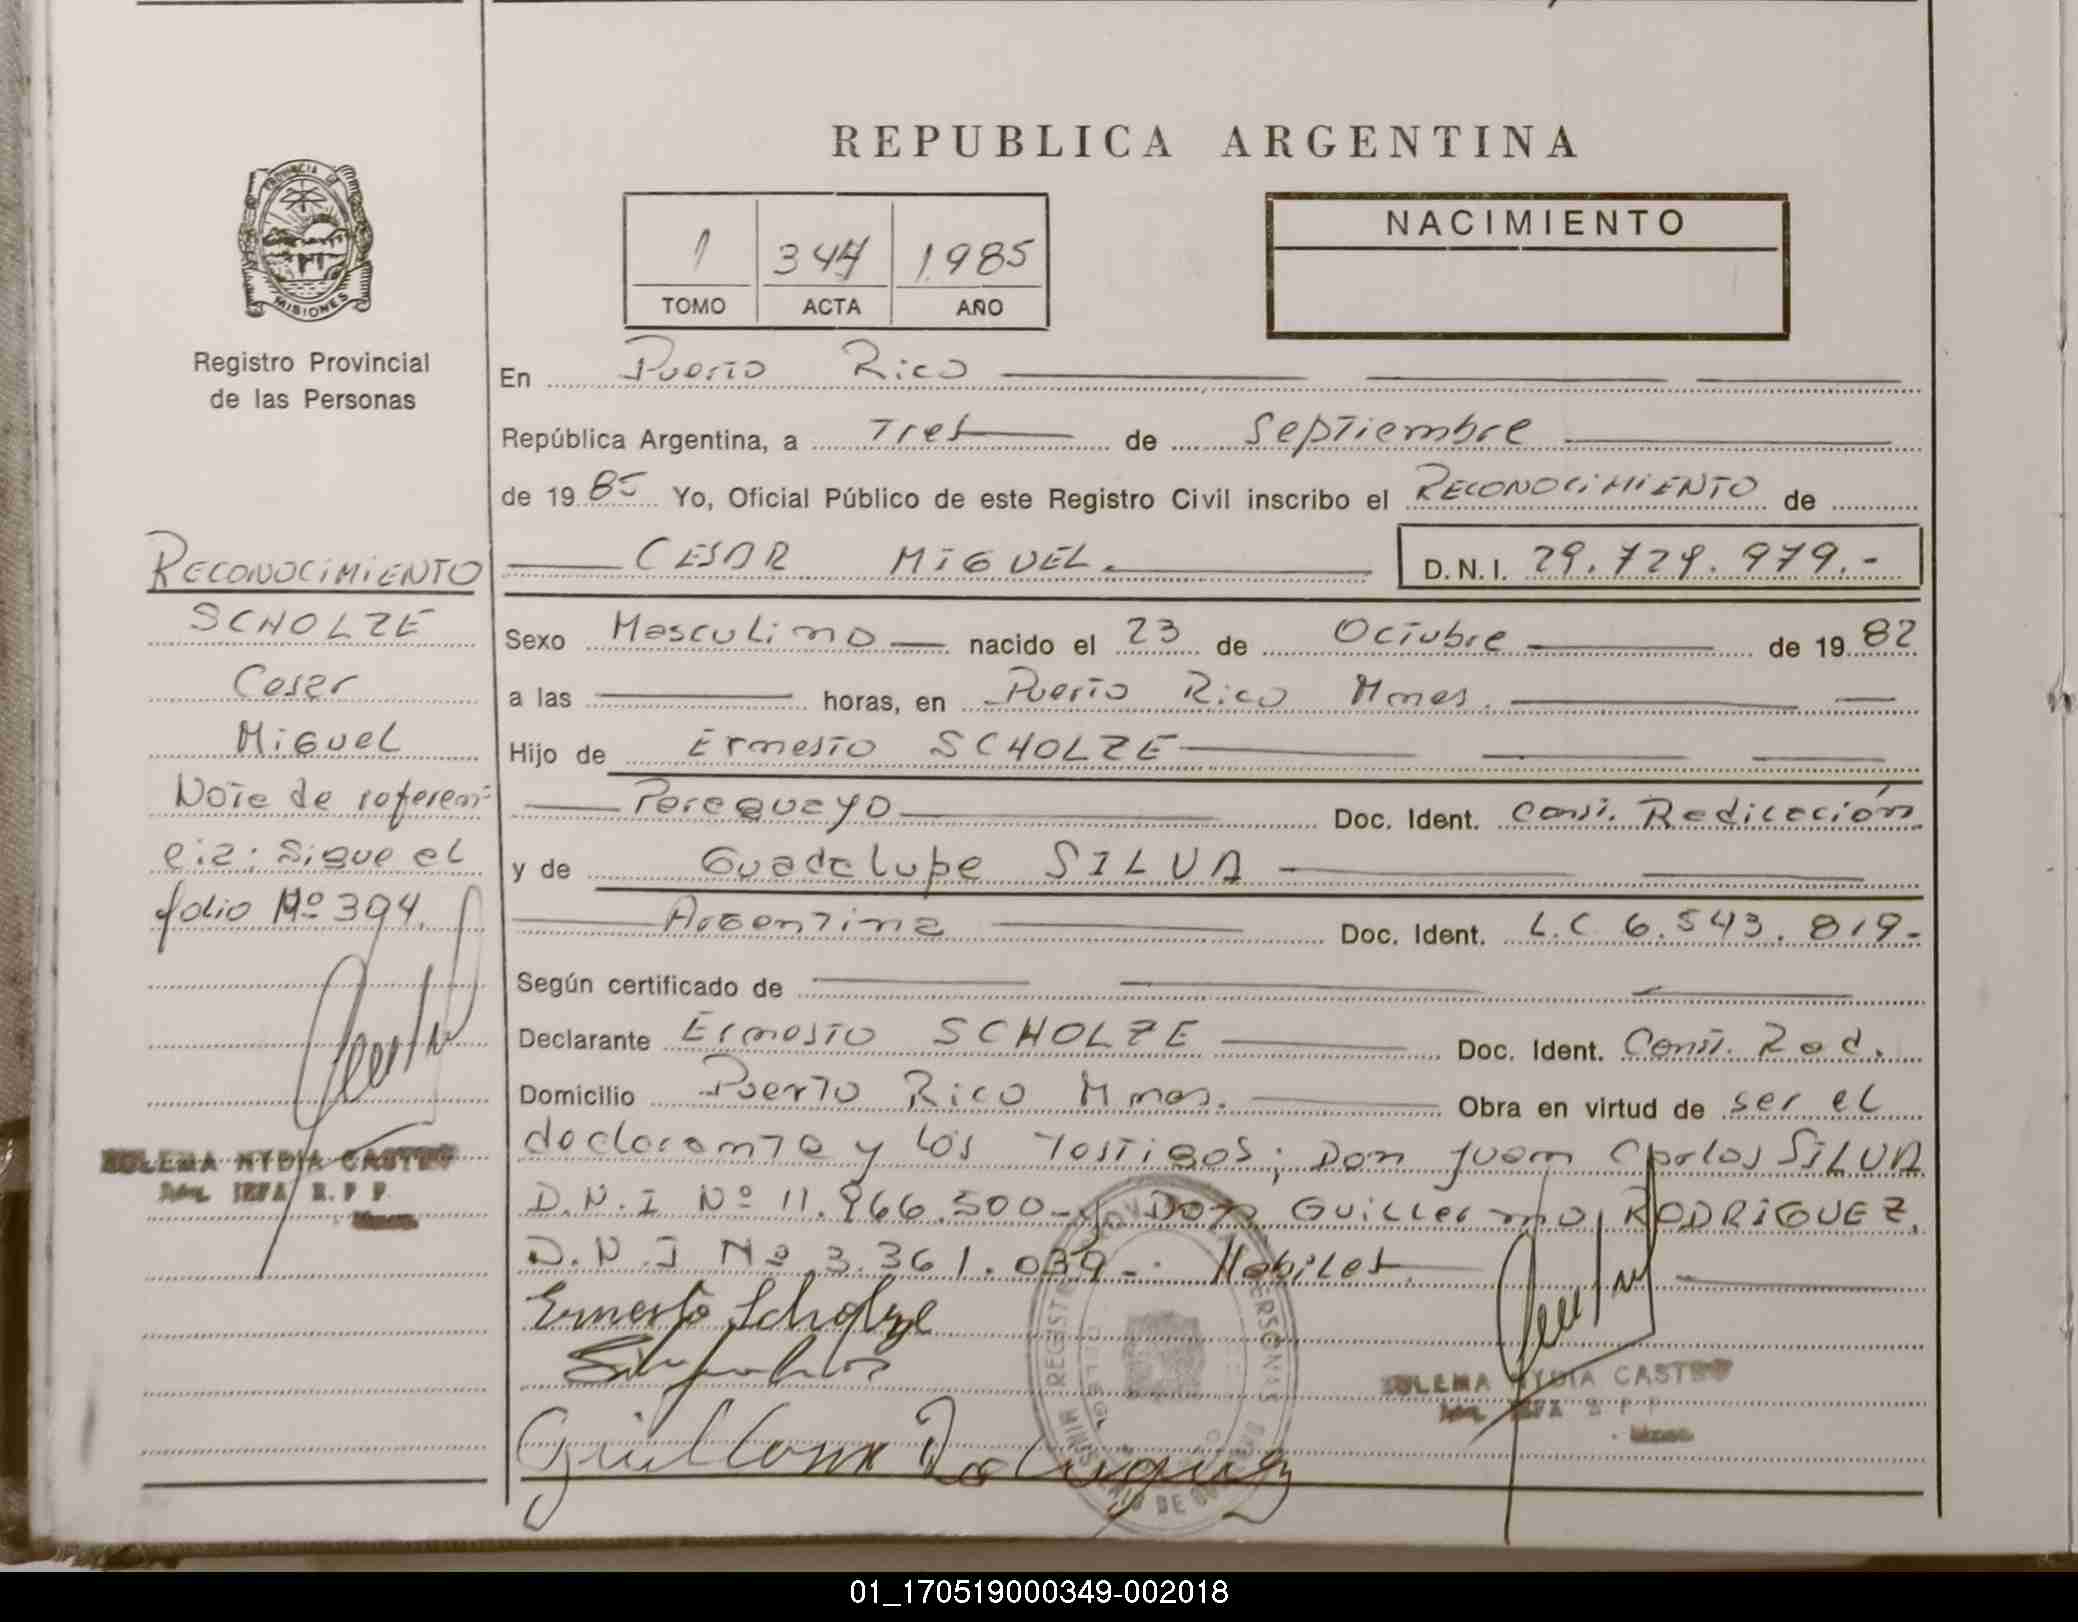 REPUBLICA ARGENTINA
PROVINCIA DE
MISIONES
Registro Provincial
de las Personas
1 344 1985
TOMO ACTA AÑO
NACIMIENTO
En Puerto Rico
República Argentina, a Tres de Septiembre
de 1985 Yo, Oficial Público de este Registro Civil inscribo el RECONOCIMIENTO de
CESAR MIGUEL. D.N.I. 29.729.979.-
Sexo Masculino nacido el 23 de Octubre de 1982
a las horas, en Puerto Rico Mnes.
Hijo de Ernesto SCHOLZE
Paraguayo Doc. Ident. Const. Radicación
y de Guadalupe SILVA
Argentina Doc. Ident. L.C 6.543.819-
Según certificado de
Declarante Ernesto SCHOLZE Doc. Ident. Const. Rad.
Domicilio Puerto Rico Mnes. Obra en virtud de ser el
declarante y los Testigos; Don Juan Carlos SILVA
D.N.I Nº 11.966.500- y Don Guillermo RODRIGUEZ
D.N.I Nº 3.361.039-. Habiles
Ernesto Scholze
RECONOCIMIENTO
SCHOLZE
Cesar
Miguel
Nota de referen-
cia: Sigue el
folio Nº 394.
ZULEMA NYDIA CASTRO
JEFA R. P P
ZULEMA NYDIA CASTRO
JEFA R P P
01_170519000349-002018